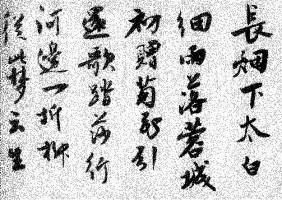 長烟下太白
細雨落蓉城
初贈菊形引
還歌踏莎行
河邊一折柳
從此梦云生